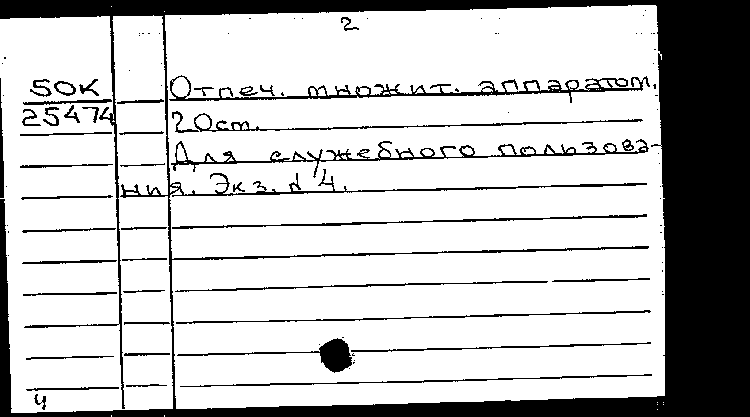 2
50К Отпеч. множит. аппаратом.
25474 20см.
Для служебного пользова-
ния. Экз. N 4.
ч